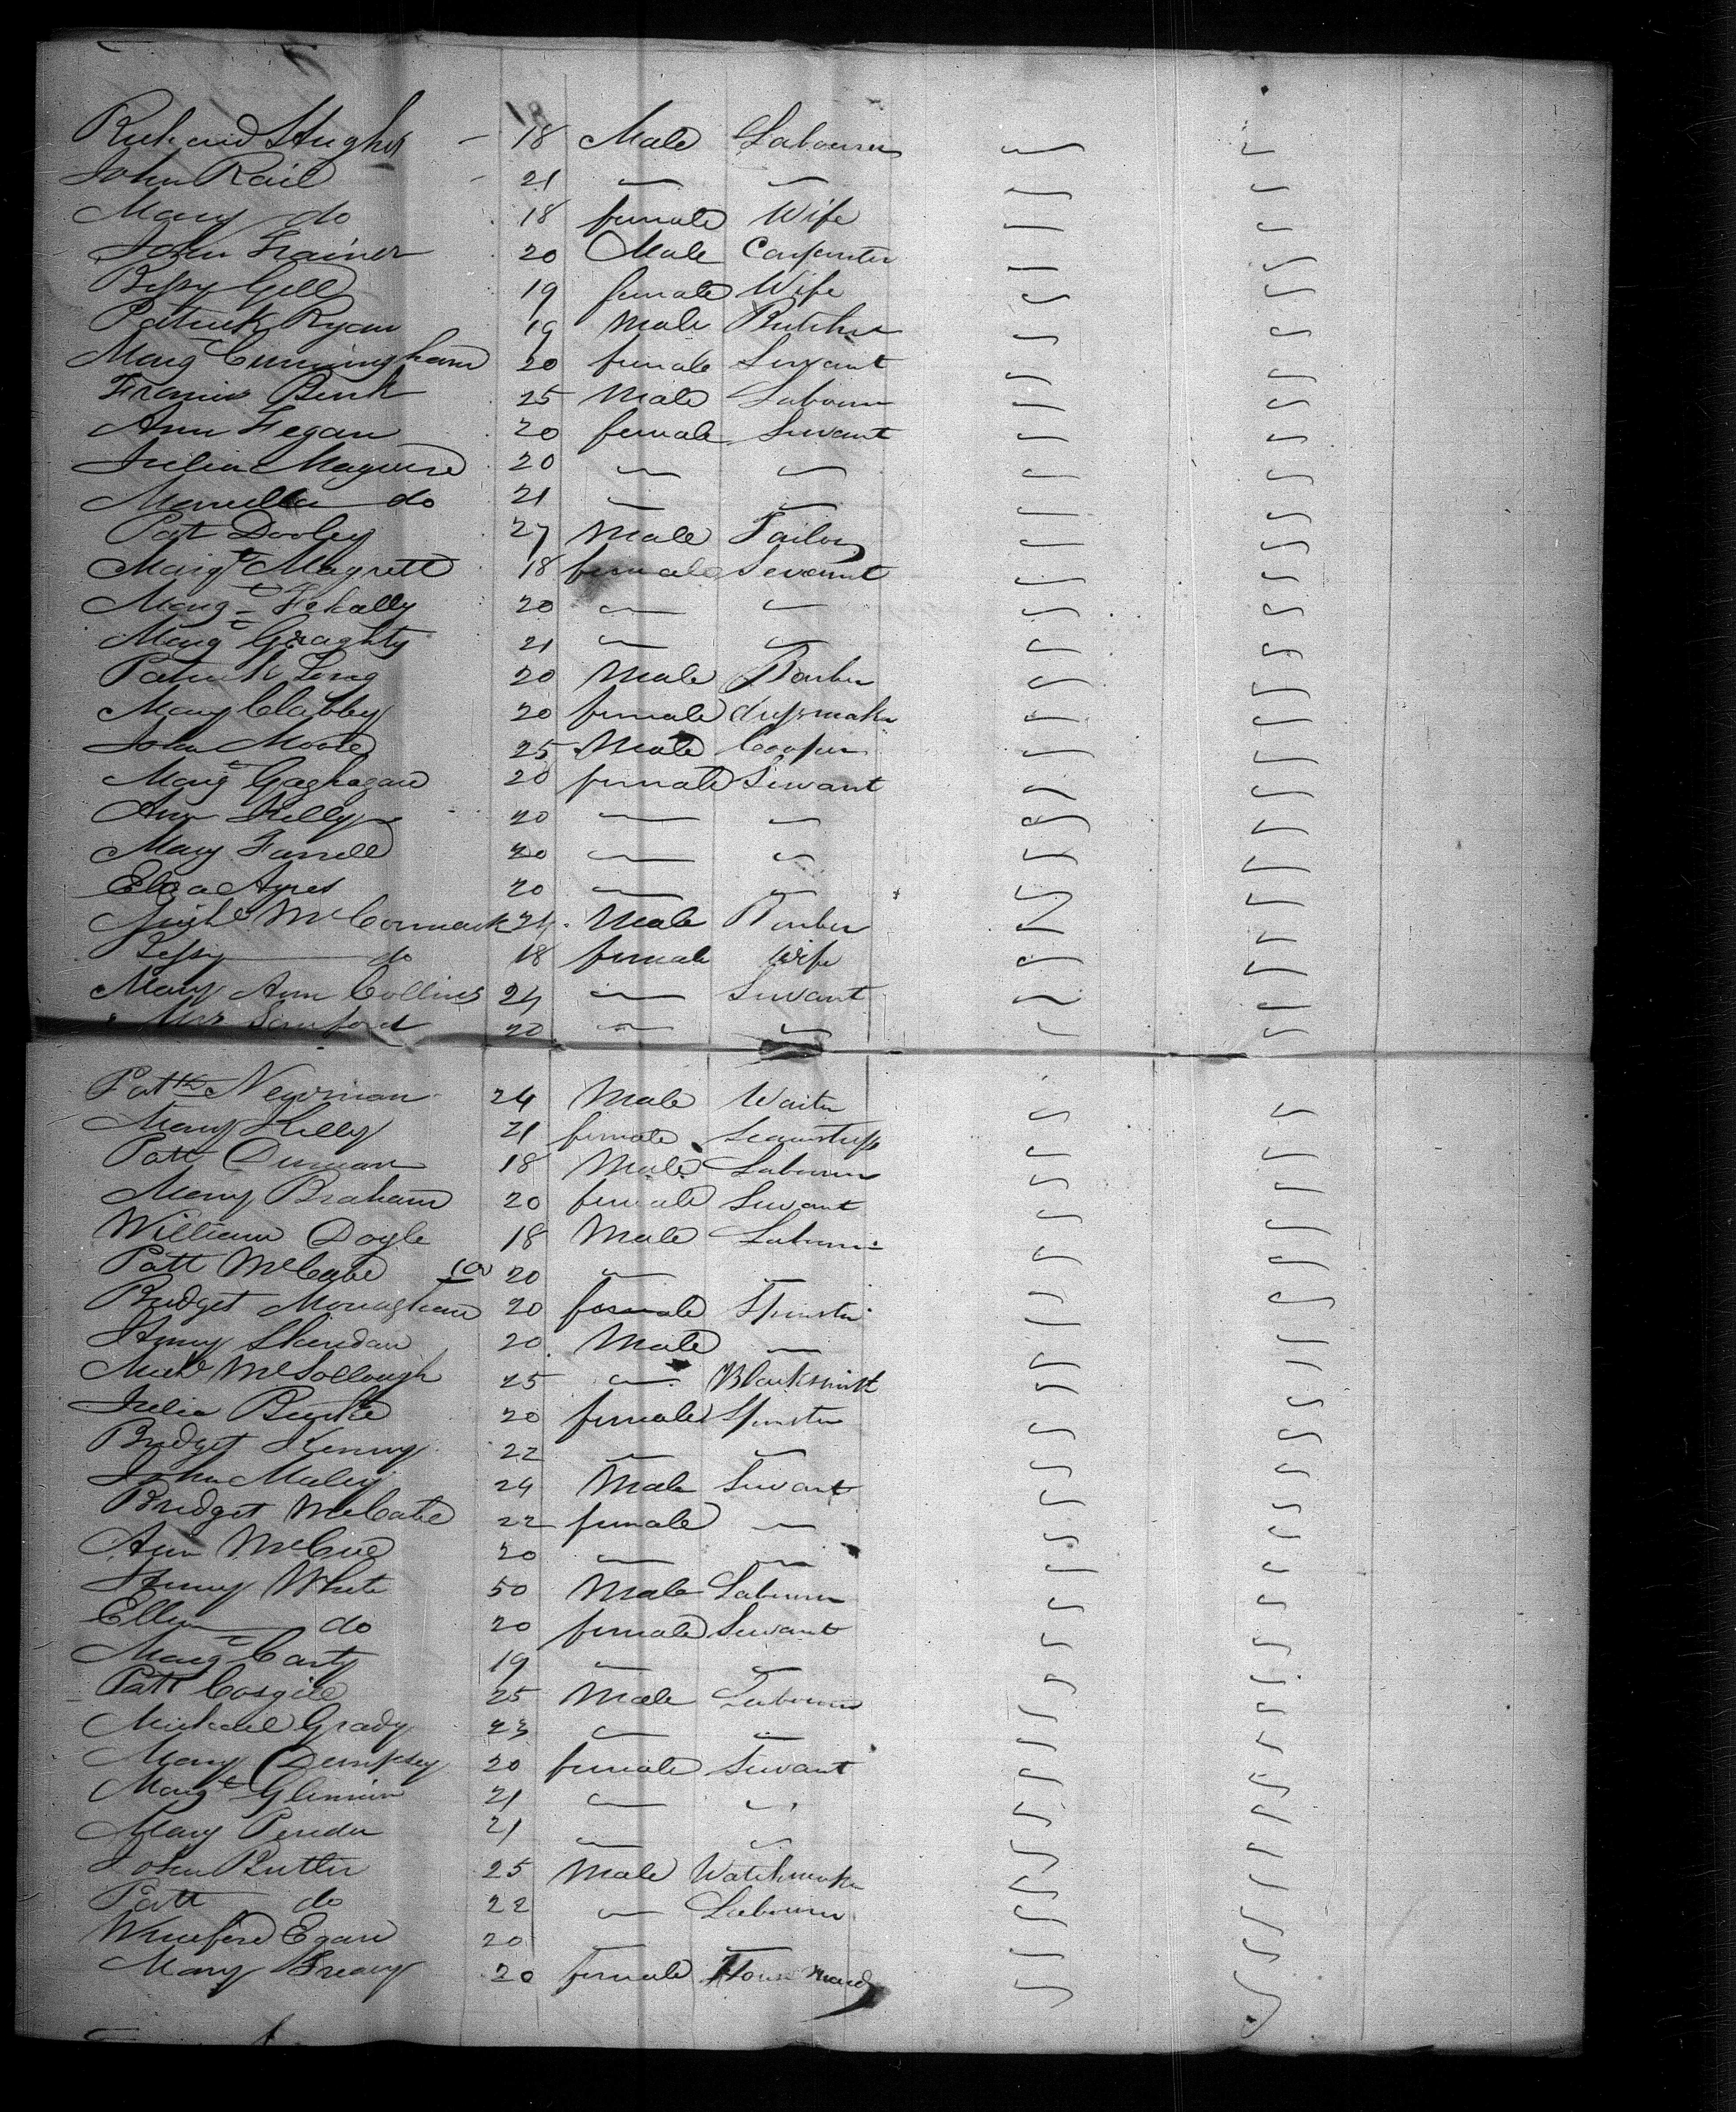 Richard Hughes - 18 Male Labourer
John Rail - 21 " "
Mary do 18 female Wife
John Trainer 20 Male Carpenter
Bessy Gill 19 female Wife
Patrick Ryan 19 Male Butcher
Marg Cunningham 20 female Servant
Francis 25 Male Labourer
Ann Fegan 20 female Servant
Julia Maguire 20 " "
do 21 " "
Pat Dooley 27 Male Tailor
Margt Magrett 18 female Servant
Margt 20 " "
Margt Geraghty 21 " "
Patrick Long 20 Male
Mary Clabby 20 female dressmaker
John Moore 25 Male Cooper
Margt Gaghagan 20 female Servant
Ann Kelly 20 " "
Mary Farrell 20 " "
Eliza Ayres 20 " "
Michl McCormack 24 Male
Bessy do 18 female Wife
Mary Ann Collins 24 " Servant
" Mrs Samford 20 " "
Pattk Newman 24 Male Waiter
Mary Kelly 21 female Seamstress
Patt 18 Male Labourer
Mary Braham 20 female Servant
William Doyle 18 Male Labourer
Patt McCabe 100 20 " "
Bridget Monaghan 20 female Spinster
Henry Sheridan 20 Male "
Michl McCollough 25 " Blacksmith
Julia Burke 20 female Spinster
Bridget Kenny 22 " "
John Maley 24 Male Servant
Bridget McCabe 22 female "
Ann McCue 20 " "
Henry White 50 Male Labourer
Ellen do 20 female Servant
Margt Carty 19 " "
Patt Cosgile 25 Male Labourer
Michael Grady 23 " "
Mary Dempsey 20 female Servant
Margt Glennin 21 " "
Mary 21 " "
John Butler 25 Male Watchmaker
Patt do 22 " Labourer
Winefred Egan 20 " "
Mary Breany 20 female House Maid